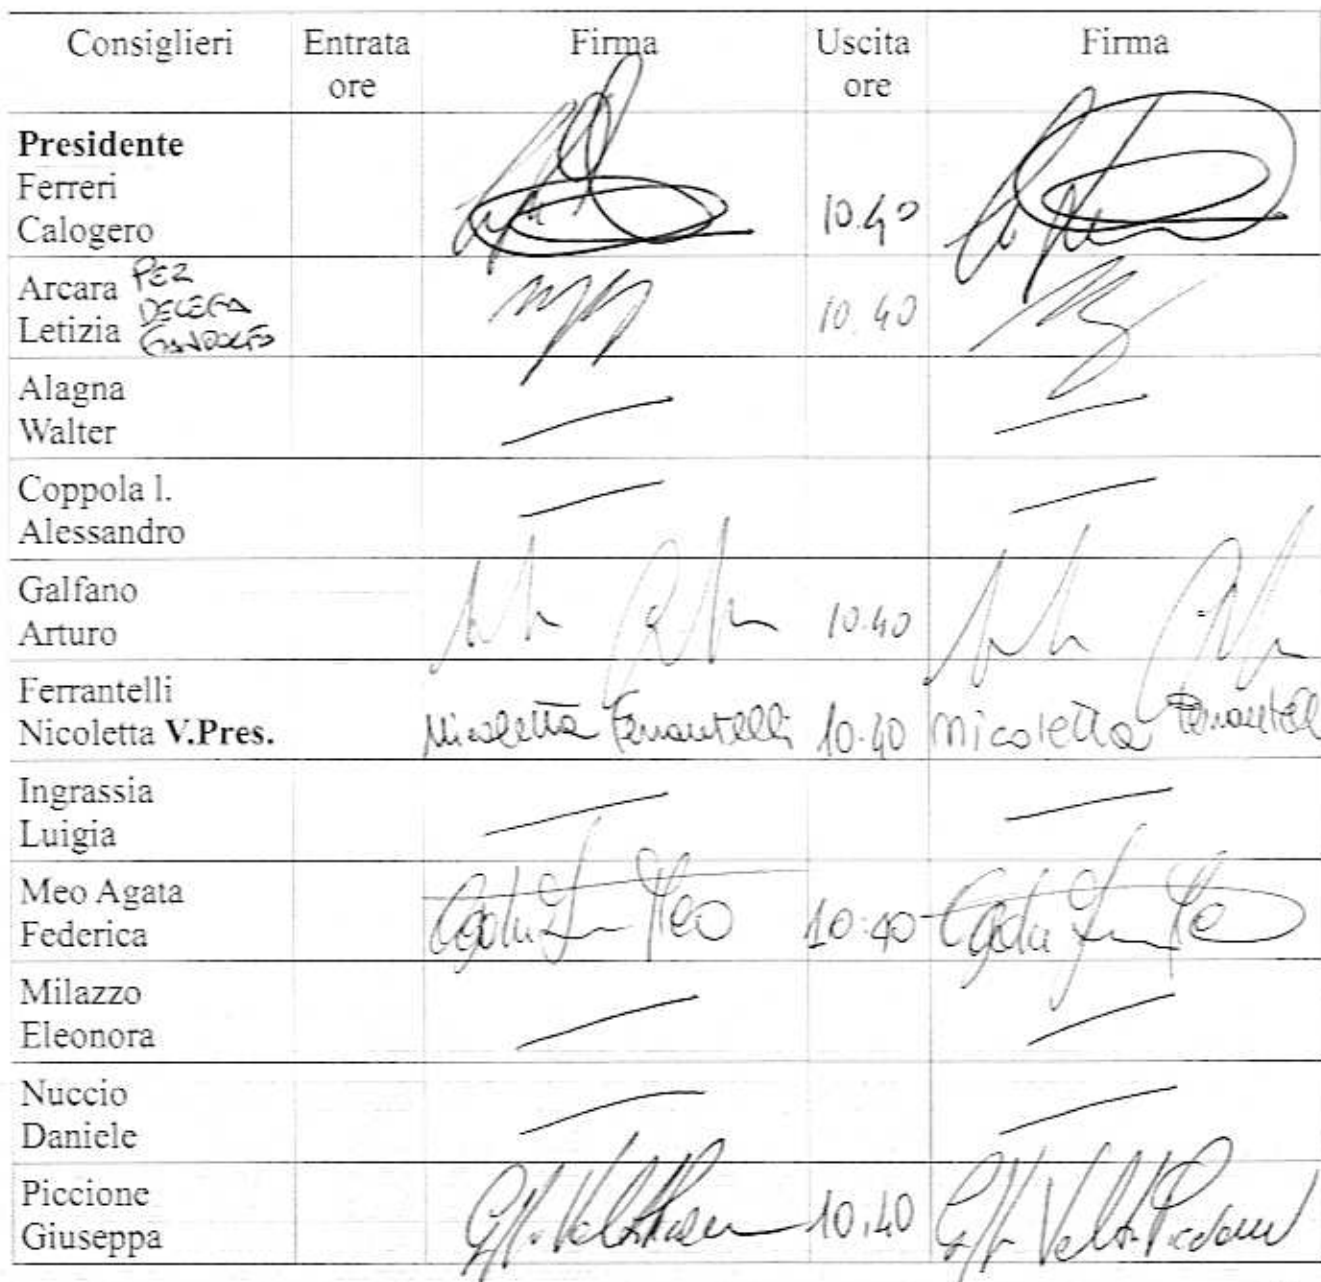 Consiglieri Entrata Firma Uscita Firma
ore ore
Presidente
Ferreri
Calogero 10.40
Arcara PER
DELEGA
Letizia GANDOLFO 10.40
Alagna
Walter
Coppola l.
Alessandro
Galfano
Arturo 10.40
Ferrantelli
Nicoletta V.Pres. Nicoletta Ferrantelli 10.40 Nicoletta Ferrantell
Ingrassia
Luigia
Meo Agata
Federica Meo 10:40
Milazzo
Eleonora
Nuccio
Daniele
Piccione
Giuseppa 10.40